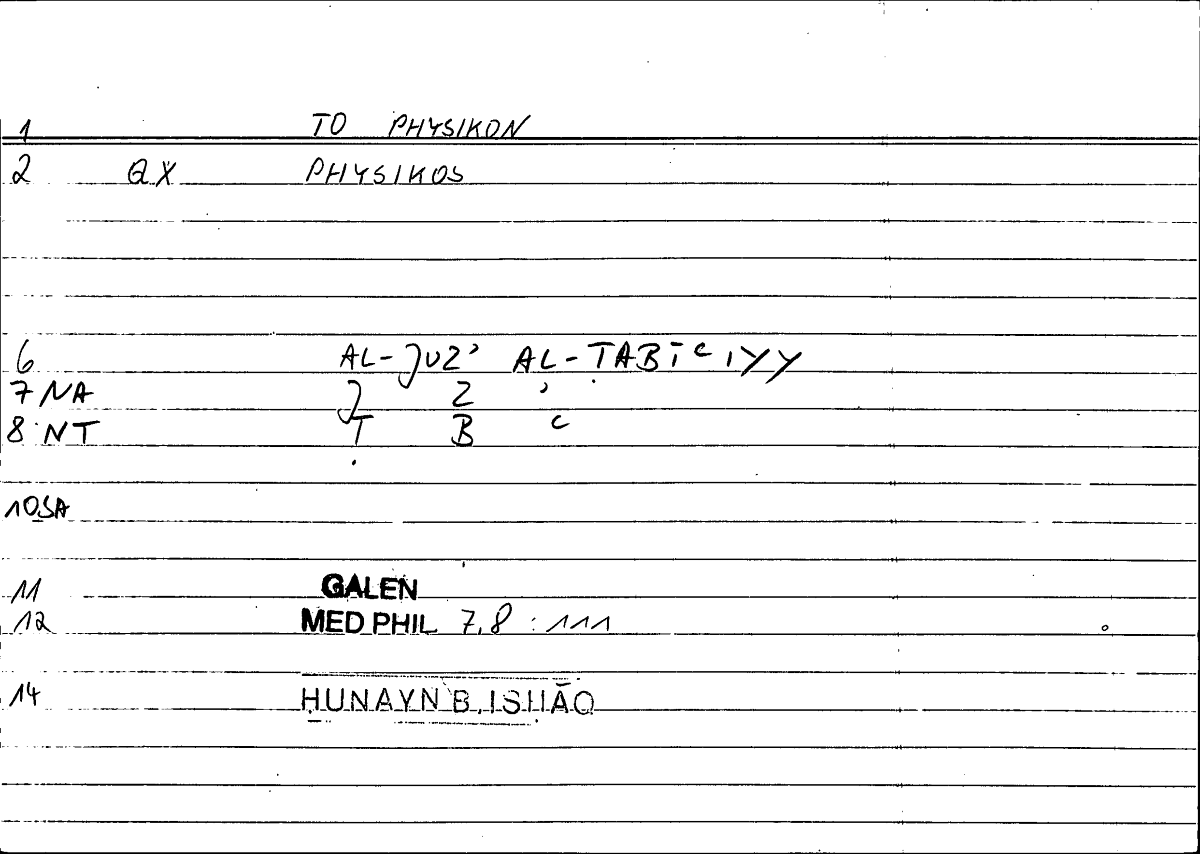 1 TO PHYSIKON
2 QX PHYSIKOS
6 AL-JUZʾ AL-ṬABĪʿIYY
7 NA J Z ʾ
8 NT Ṭ B ʿ
10 SA
11 GALEN
12 MED PHIL 7,8 : 111
14 ḤUNAYN B. ISḤĀQ